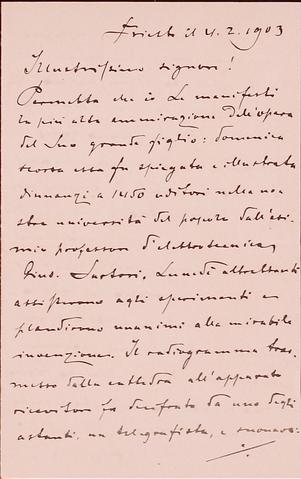 Trieste il 4.2.1903
Illustrissimo signore!
Permetta che io Le manifesti
la più alta ammirazione dell'opera
del Suo grande figlio: domenica
scorsa essa fu spiegata e illustrata
dinnanzi a 1450 uditori nella no
stra università del popolo dall'esi
mio professore d'elettrotecnica,
Gius. Sartori, Lunedì altrettanti
assistevano agli esperimenti e
plaudirono unanimi alla mirabile
invenzione. Il radiogramma tras
messo dalla cattedra all'apparato
ricevitore fu decifrato da uno degli
astanti, un telegrafista, e suonava: